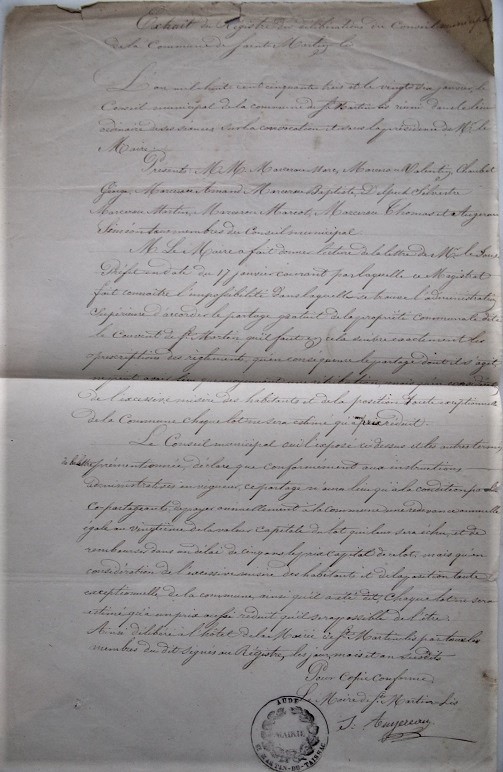 Extrait du Registre des délibérations du Conseil municipal
de la Commune de Saint Martin Lis
L'an mil huit cent cinquante trois et le vingt six janvier, le
Conseil municipal de la commune de St Martin Lis réuni dans le lieu
ordinaire de ses séances sur la convocation et sous la présidence de Mr le
Maire.
Présents M.M. Marceau Marc,
Marceau Armand Marceau Baptiste,
Marceau Martin, Thomas et Augereau
membres du Conseil municipal
M. Le Maire a fait donner lecture de la lettre de Mr le Sous
Préfet en date du 17 janvier courant par laquelle ce Magistrat
fait connaître l'impossibilité dans laquelle se trouve l'administration
Supérieure d'accorder le partage gratuit de la propriété communale dite
le Couvent de St Martin, qu'il faut en cela suivre exactement les
prescriptions des règlements, qu'en conséquence le partage dont il s'agit
de l'excessive misère des habitants et de la position toute exceptionnelle
de la Commune chaque lot ne sera estimé qu'à prix réduit.
Le Conseil municipal ouï l'exposé ci dessus et la lettre
prémentionnée, déclare que conformément aux instructions
administratives en vigueur, ce partage n'aura lieu qu'à la condition par les
copartageants, de payer annuellement à la commune une redevance annuelle
égale au vingtième de la valeur capitale du lot qui leur sera échu, et de
rembourser dans un délai de cinq ans le prix capital de ce lot, mais qu'en
considération de l'excessive misère des habitants et de la position toute
exceptionnelle de la commune, ainsi qu'il a été dit, Chaque lot ne sera
estimé qu'à un prix aussi réduit qu'il sera possible de l'être.
Ainsi délibéré à l'hôtel de la Mairie de St Martin Lis par tous les
membres du dit signés au Registre, les jour, mois et an susdits
Pour Copie Conforme
Le Maire de St Martin Lis
AUDE
MAIRIE